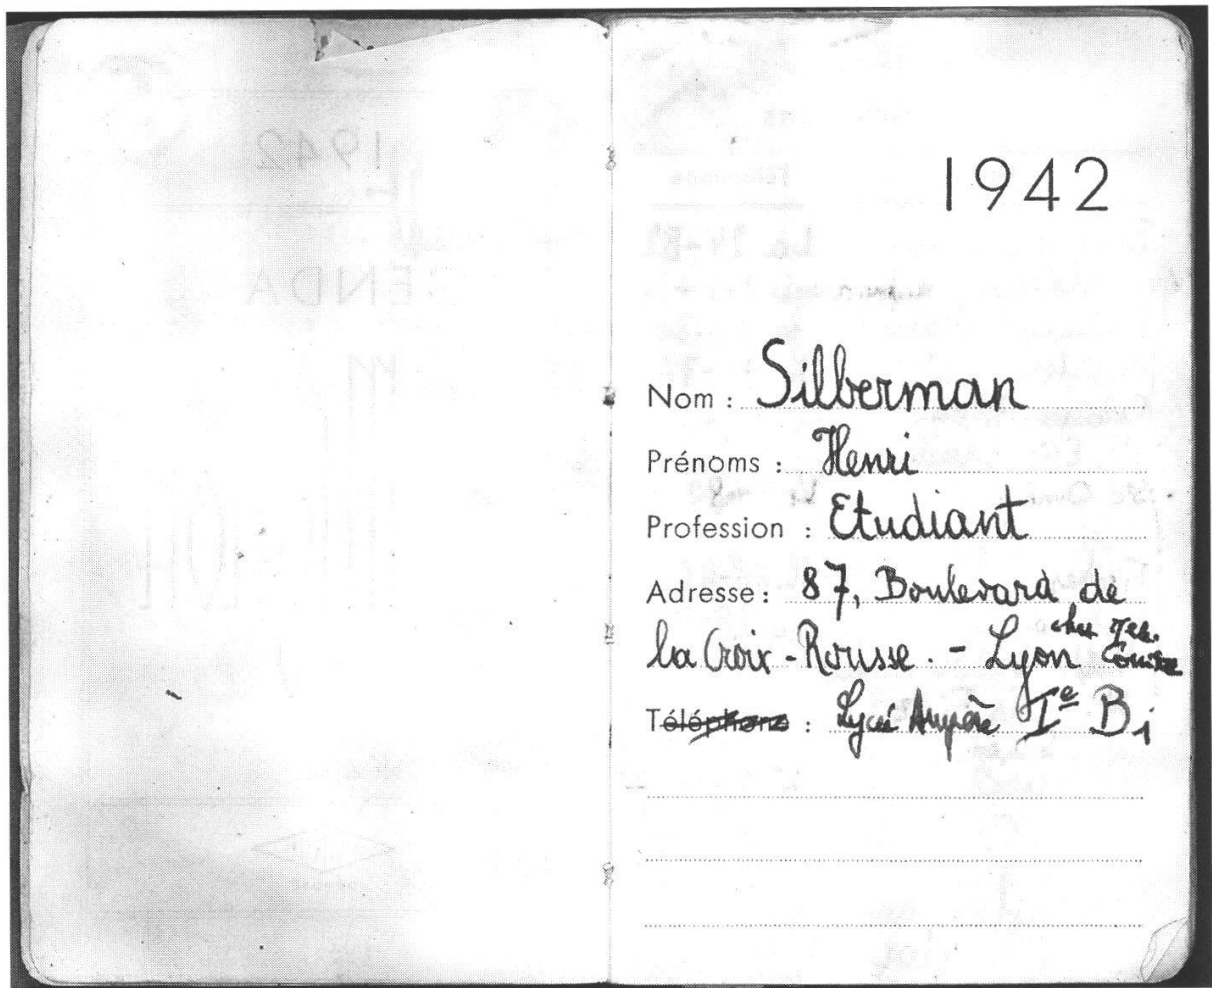 1942
Nom : Silberman
Prénoms : Henri
Profession : Etudiant
Adresse : 87, Boulevard de
la Croix-Rousse. - Lyon chez
Téléphone : Lycée Ampère Ie B
1942